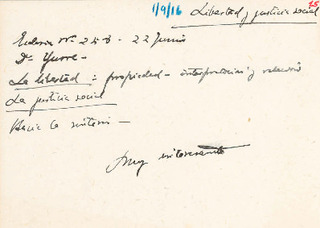 1/9/16 Libertad y justicia social 75
Ecclesia Nº 258 - 22 Junio
Dr Yurre -
La libertad : propiedad - interpretación y relación
La justicia social
Hacia la síntesis -
Muy interesante